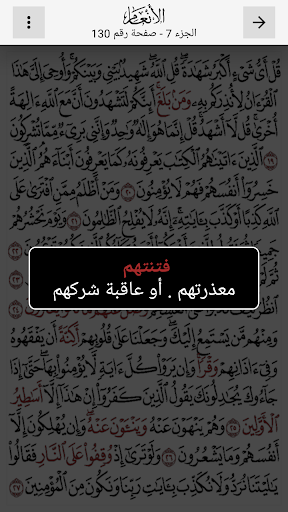 الأنعام
الجزء 7 - صفحة رقم 130
قُلْ أَىُّ شَىْءٍ أَكْبَرُ شَهَٰدَةً قُلِ ٱللَّهُ شَهِيدٌۢ بَيْنِى وَبَيْنَكُمْ وَأُوحِىَ إِلَىَّ هَٰذَا
ٱلْقُرْءَانُ لِأُنذِرَكُم بِهِۦ وَمَنۢ بَلَغَ أَئِنَّكُمْ لَتَشْهَدُونَ أَنَّ مَعَ ٱللَّهِ ءَالِهَةً
أُخْرَىٰ قُل لَّآ أَشْهَدُ قُلْ إِنَّمَا هُوَ إِلَٰهٌ وَٰحِدٌ وَإِنَّنِى بَرِىٓءٌ مِّمَّا تُشْرِكُونَ ١٩
ٱلَّذِينَ ءَاتَيْنَٰهُمُ ٱلْكِتَٰبَ يَعْرِفُونَهُۥ كَمَا يَعْرِفُونَ أَبْنَآءَهُمُ ٱلَّذِينَ
خَسِرُوٓا۟ أَنفُسَهُمْ فَهُمْ لَا يُؤْمِنُونَ ٢٠ وَمَنْ أَظْلَمُ مِمَّنِ ٱفْتَرَىٰ عَلَى
ٱللَّهِ كَذِبًا أَوْ كَذَّبَ بِـَٔايَٰتِهِۦٓ إِنَّهُۥ لَا يُفْلِحُ ٱلظَّٰلِمُونَ ٢١ وَيَوْمَ نَحْشُرُهُمْ
فتنتهم
معذرتهم . أو عاقبة شركهم
وَمِنْهُم مَّن يَسْتَمِعُ إِلَيْكَ وَجَعَلْنَا عَلَىٰ قُلُوبِهِمْ أَكِنَّةً أَن يَفْقَهُوهُ
وَفِىٓ ءَاذَانِهِمْ وَقْرًا وَإِن يَرَوْا۟ كُلَّ ءَايَةٍ لَّا يُؤْمِنُوا۟ بِهَا حَتَّىٰٓ إِذَا
جَآءُوكَ يُجَٰدِلُونَكَ يَقُولُ ٱلَّذِينَ كَفَرُوٓا۟ إِنْ هَٰذَآ إِلَّآ أَسَٰطِيرُ
ٱلْأَوَّلِينَ ٢٥ وَهُمْ يَنْهَوْنَ عَنْهُ وَيَنْـَٔوْنَ عَنْهُ وَإِن يُهْلِكُونَ إِلَّآ
أَنفُسَهُمْ وَمَا يَشْعُرُونَ ٢٦ وَلَوْ تَرَىٰٓ إِذْ وُقِفُوا۟ عَلَى ٱلنَّارِ فَقَالُوا۟
يَٰلَيْتَنَا نُرَدُّ وَلَا نُكَذِّبَ بِـَٔايَٰتِ رَبِّنَا وَنَكُونَ مِنَ ٱلْمُؤْمِنِينَ ٢٧